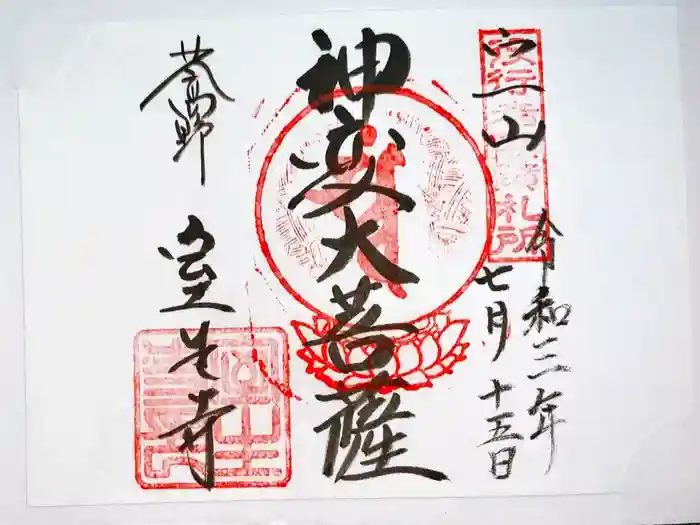 役行者霊蹟札所
宀一山
令和三年
七月十五日
神変大菩薩
室生寺